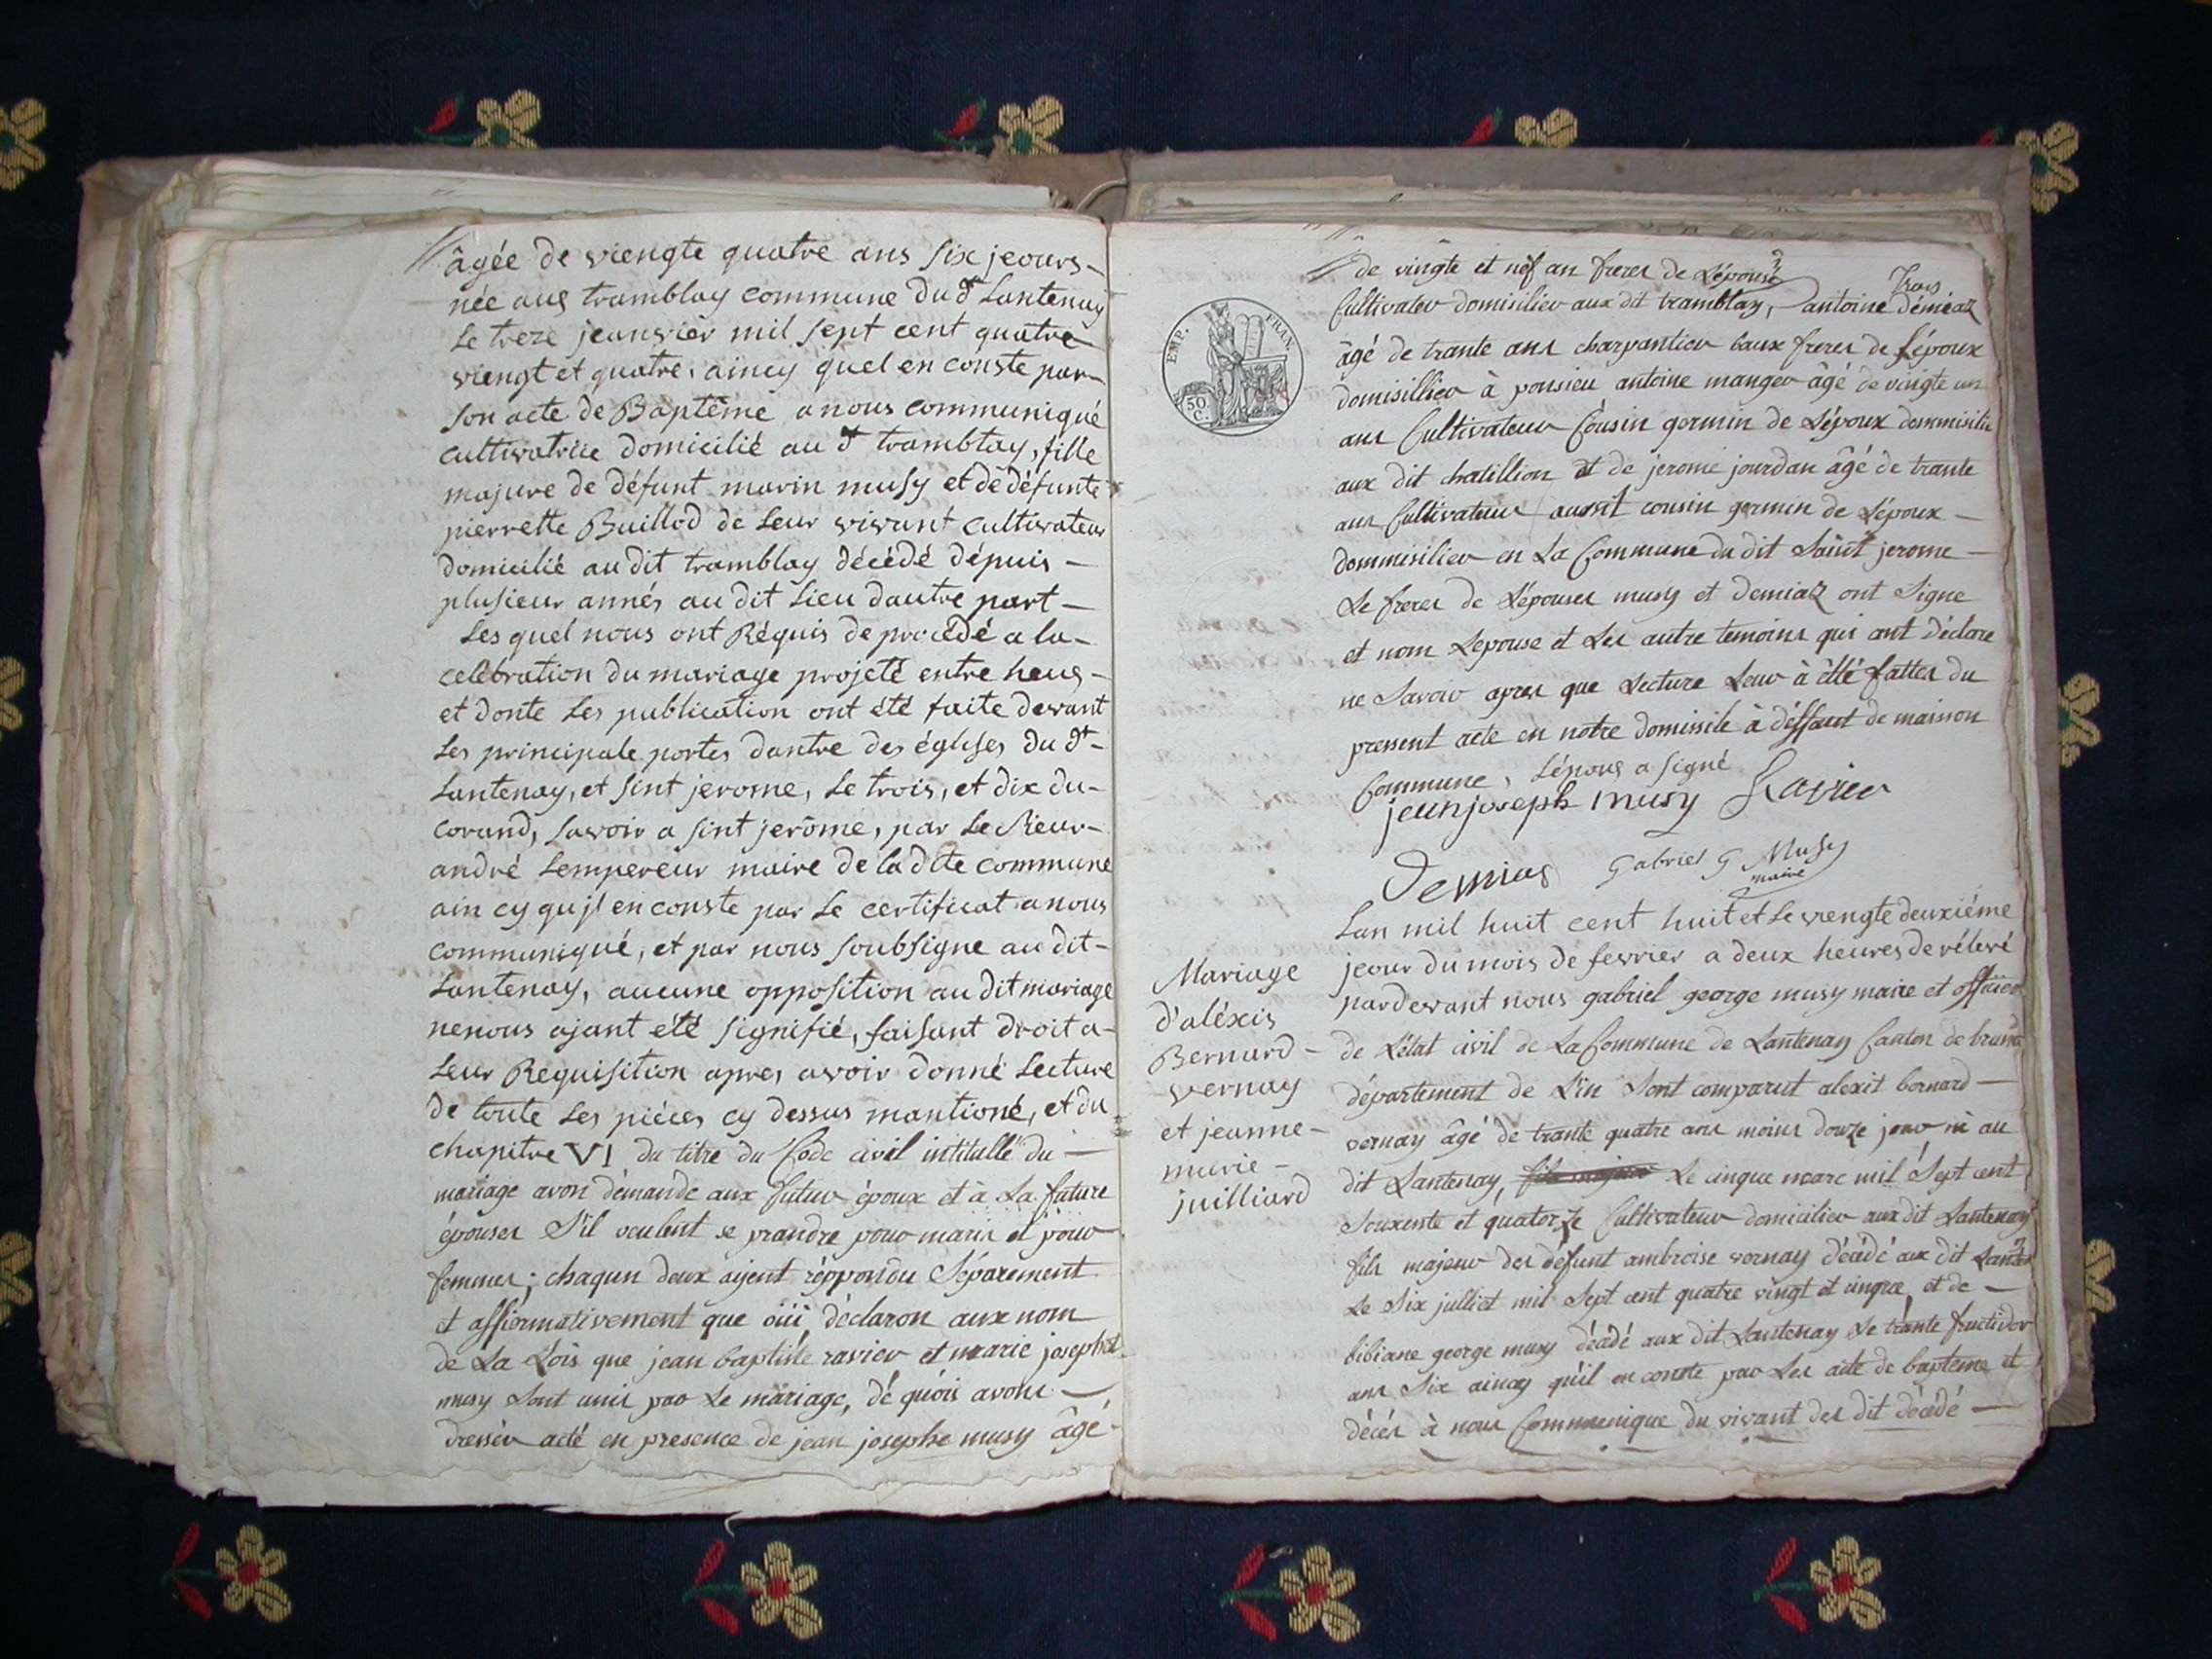 âgée de viengte quatre ans six jeours-
née aus tramblay commune du dt Lantenay
Le treze jeanvier mil sept cent quatre
viengt et quatre, aincy quel en conste par-
son acte de Baptême a nous communiqué
cultivatrice domicilié au dt tramblay, fille
majure de défunt marin musy et de défunte
pierrette Buillod de Leur vivant cultivateur
domicilié au dit tramblay décédé dépuis-
plusieur annés au dit Lieu dautre part-
Les quel nous ont Réquis de procédé a la-
celebration du mariage projeté entre heus-
et donte Les publication ont été faite devant
Les principale portes dantre des églises du dt-
Lantenay, et sint jerome, Le trois, et dix du-
corand, savoir a sint jerôme, par Le sieur-
andré Lempereur maire de la dite commune
ain cy qujl en conste par Le certificat a nous
communiqué, et par nous soubsigne au dit-
Lantenay, aucune opposition au dit mariage
ne nous ajant été signifié, faisant droit a-
Leur Réquisition apres avoir donné Lecture
de toute Les piéces cy dessus mantioné, et du
chapitre VI du titre du Code civil intitallé du-
mariage avon demande aux futur époux et à La future
épouses S'il veulent se prandre pour maris et pour
femmes; chaqun deux aijent répponдu Séparement
et affiermativement que oüi déclaron aux nom
de La Lois que jean baptiste ravier et marie josephte
musy Sont unis par Le mariage, dé quois avons-
dresser acté en presence de jean josephe musy âgé-
EMP. FRAN.
50 C.
de vingte et néf an freres de Lépouse
Cultivater domisilier aux dit tramblay, antoine déméaz
trois
âgé de trante ans charpantier baux freres de Lépoux
domisillier à ponsieu antoine manger âgé de vingte un
ans Cultivateur Cousin germin de Lépoux dommisilie
aux dit chatillion et de jerome jourdan âgé de trante
ans Cultivateur aussit cousin germin de Lépoux-
dommisilier en La Commune du dit Saint jerome-
Le freres de Lépouses musy et demiaz ont Signe
et nom Lepouse et Les autre temoins qui ont déclare
ne Savoir apres que Lecture Leur à été fattes du
pressent acte en notre domissile à déffaut de maison
Commune, Lépous a signé
jeunjoseph musy Ravier
Demias Gabriel G Musy
maire
Mariage
d'aléxis
Bernard-
vernay
et jeanne-
marie-
juilliard
Lan mil huit cent huit et Le viengte deuxiéme
jeour du mois de fevrier a deux heures de rélevé
pardevant nous gabriel george musy maire et officier
de L'état civil de La Commune de Lantenay Canton de brunod
département de L'in Sont comparut alexit bernard-
vernay âgé de trante quatre ans moins douze jour né au
dit Lantenay, fils majeur Le cinque marc mil Sept cent
Souxente et quatorze Cultivateur domicilier aux dit Lantenay
fils majeur des défunt ambroise vernay décédé aux dit Lantenay
Le Six julliet mil Sept cent quatre vingt et cinque, et de-
bibiane george musy décédé aux dit Lantenay Le trante fructidor
ans Six aincy qu'il en conste par Les acte de bapteme et
décés à nous Communique du vivant des dit décédé-